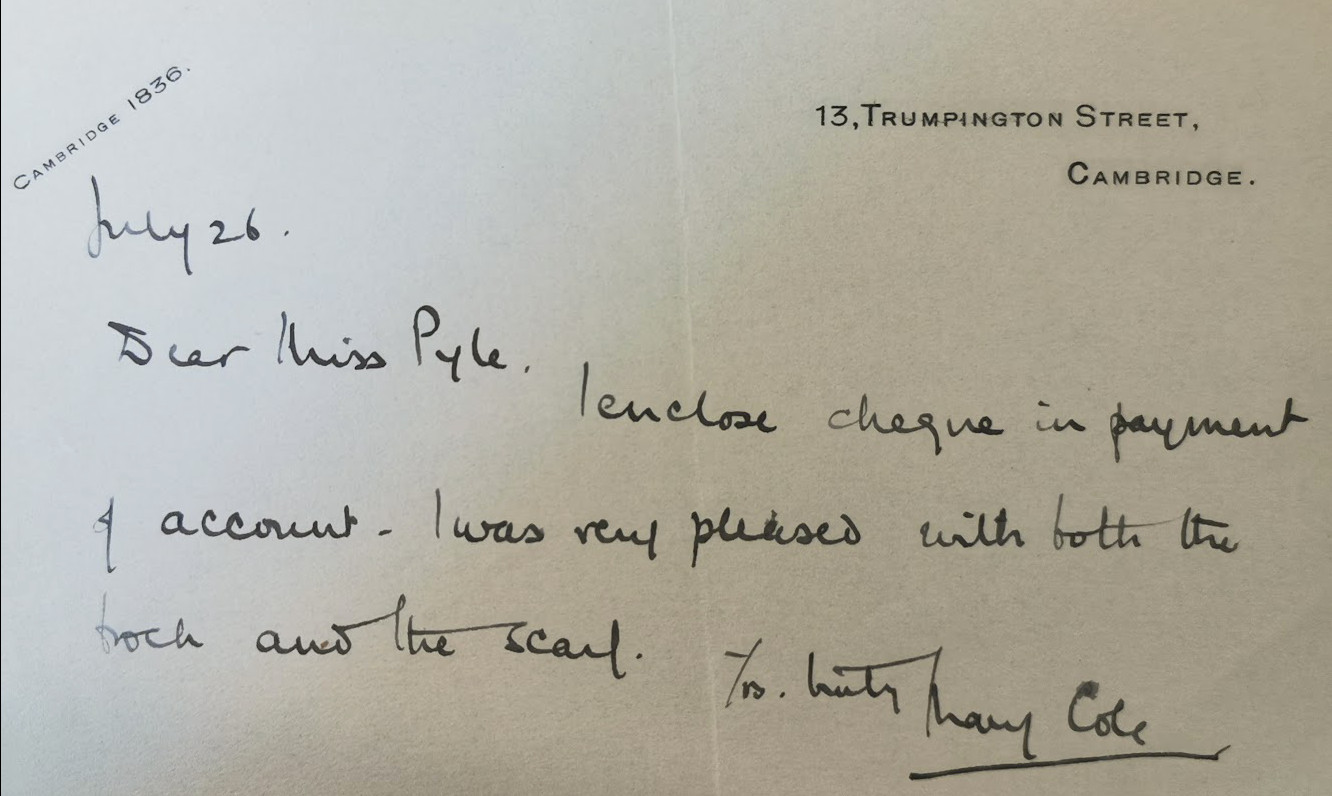 CAMBRIDGE 1836.
13, TRUMPINGTON STREET,
CAMBRIDGE.
July 26.
Dear Miss Pyle.
I enclose cheque in payment
of account - I was very pleased with both the
frock and the scarf.
Yrs. truly Mary Cole